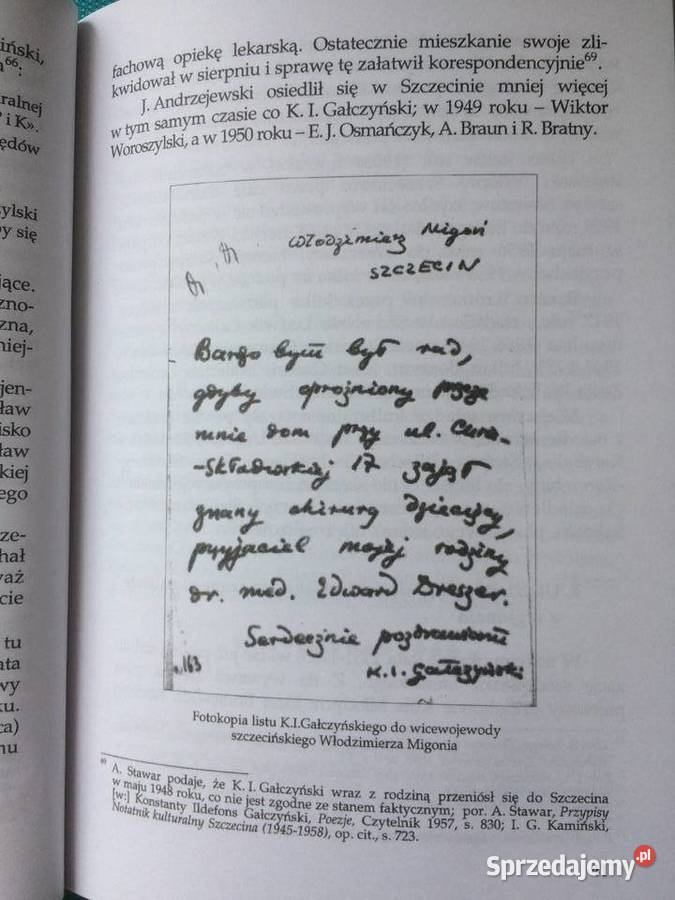 iński,
a⁶⁶:
ralnej
i K».
ędów
ylski
y się
jące.
zno-
zna,
niej-
jen-
sław
isko
ław
kiej
ego
ze-
hał
waż
cie
tu
ata
wy
ku.
ca)
mu
fachową opiekę lekarską. Ostatecznie mieszkanie swoje zli-
kwidował w sierpniu i sprawę tę załatwił korespondencyjnie⁶⁹.
J. Andrzejewski osiedlił się w Szczecinie mniej więcej
w tym samym czasie co K. I. Gałczyński; w 1949 roku – Wiktor
Woroszylski, a w 1950 roku – E. J. Osmańczyk, A. Braun i R. Bratny.
Włodzimierz Migoń
SZCZECIN
Bardzo bym był rad,
gdyby opróżniony przeze
mnie dom przy ul. Curie-
-Skłodowskiej 17 zajął
znany chirurg dziecięcy,
przyjaciel mojej rodziny
dr. med. Edward Drescher.
Serdecznie pozdrawiam
K. I. Gałczyński
163
Fotokopia listu K.I.Gałczyńskiego do wicewojewody
szczecińskiego Włodzimierza Migonia
⁶⁹ A. Stawar podaje, że K. I. Gałczyński wraz z rodziną przeniósł się do Szczecina
w maju 1948 roku, co nie jest zgodne ze stanem faktycznym; por. A. Stawar, Przypisy
[w:] Konstanty Ildefons Gałczyński, Poezje, Czytelnik 1957, s. 830; I. G. Kamiński,
Notatnik kulturalny Szczecina (1945-1958), op. cit., s. 723.
Sprzedajemy.pl